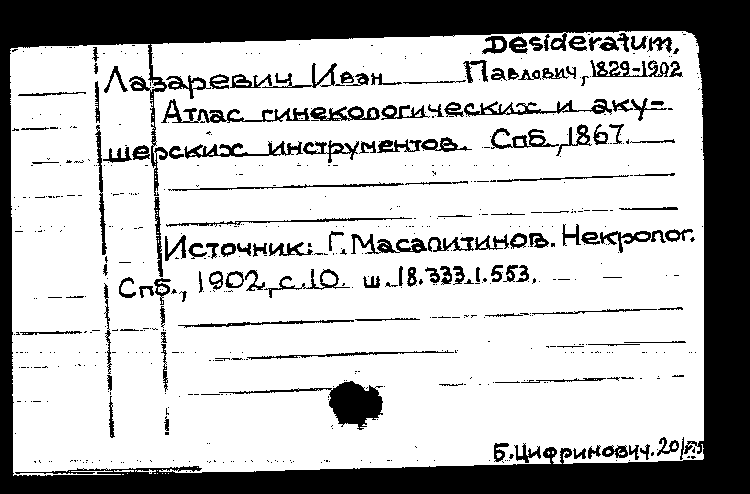 Desideratum,
Лазаревич Иван Павлович, 1829-1902
Атлас гинекологических и аку-
шерских инструментов. Спб., 1867.
Источник: Г. Масалитинов. Некролог.
Спб., 1902, с.10. ш.18.333.1.553.
Б.Цифринович. 20/